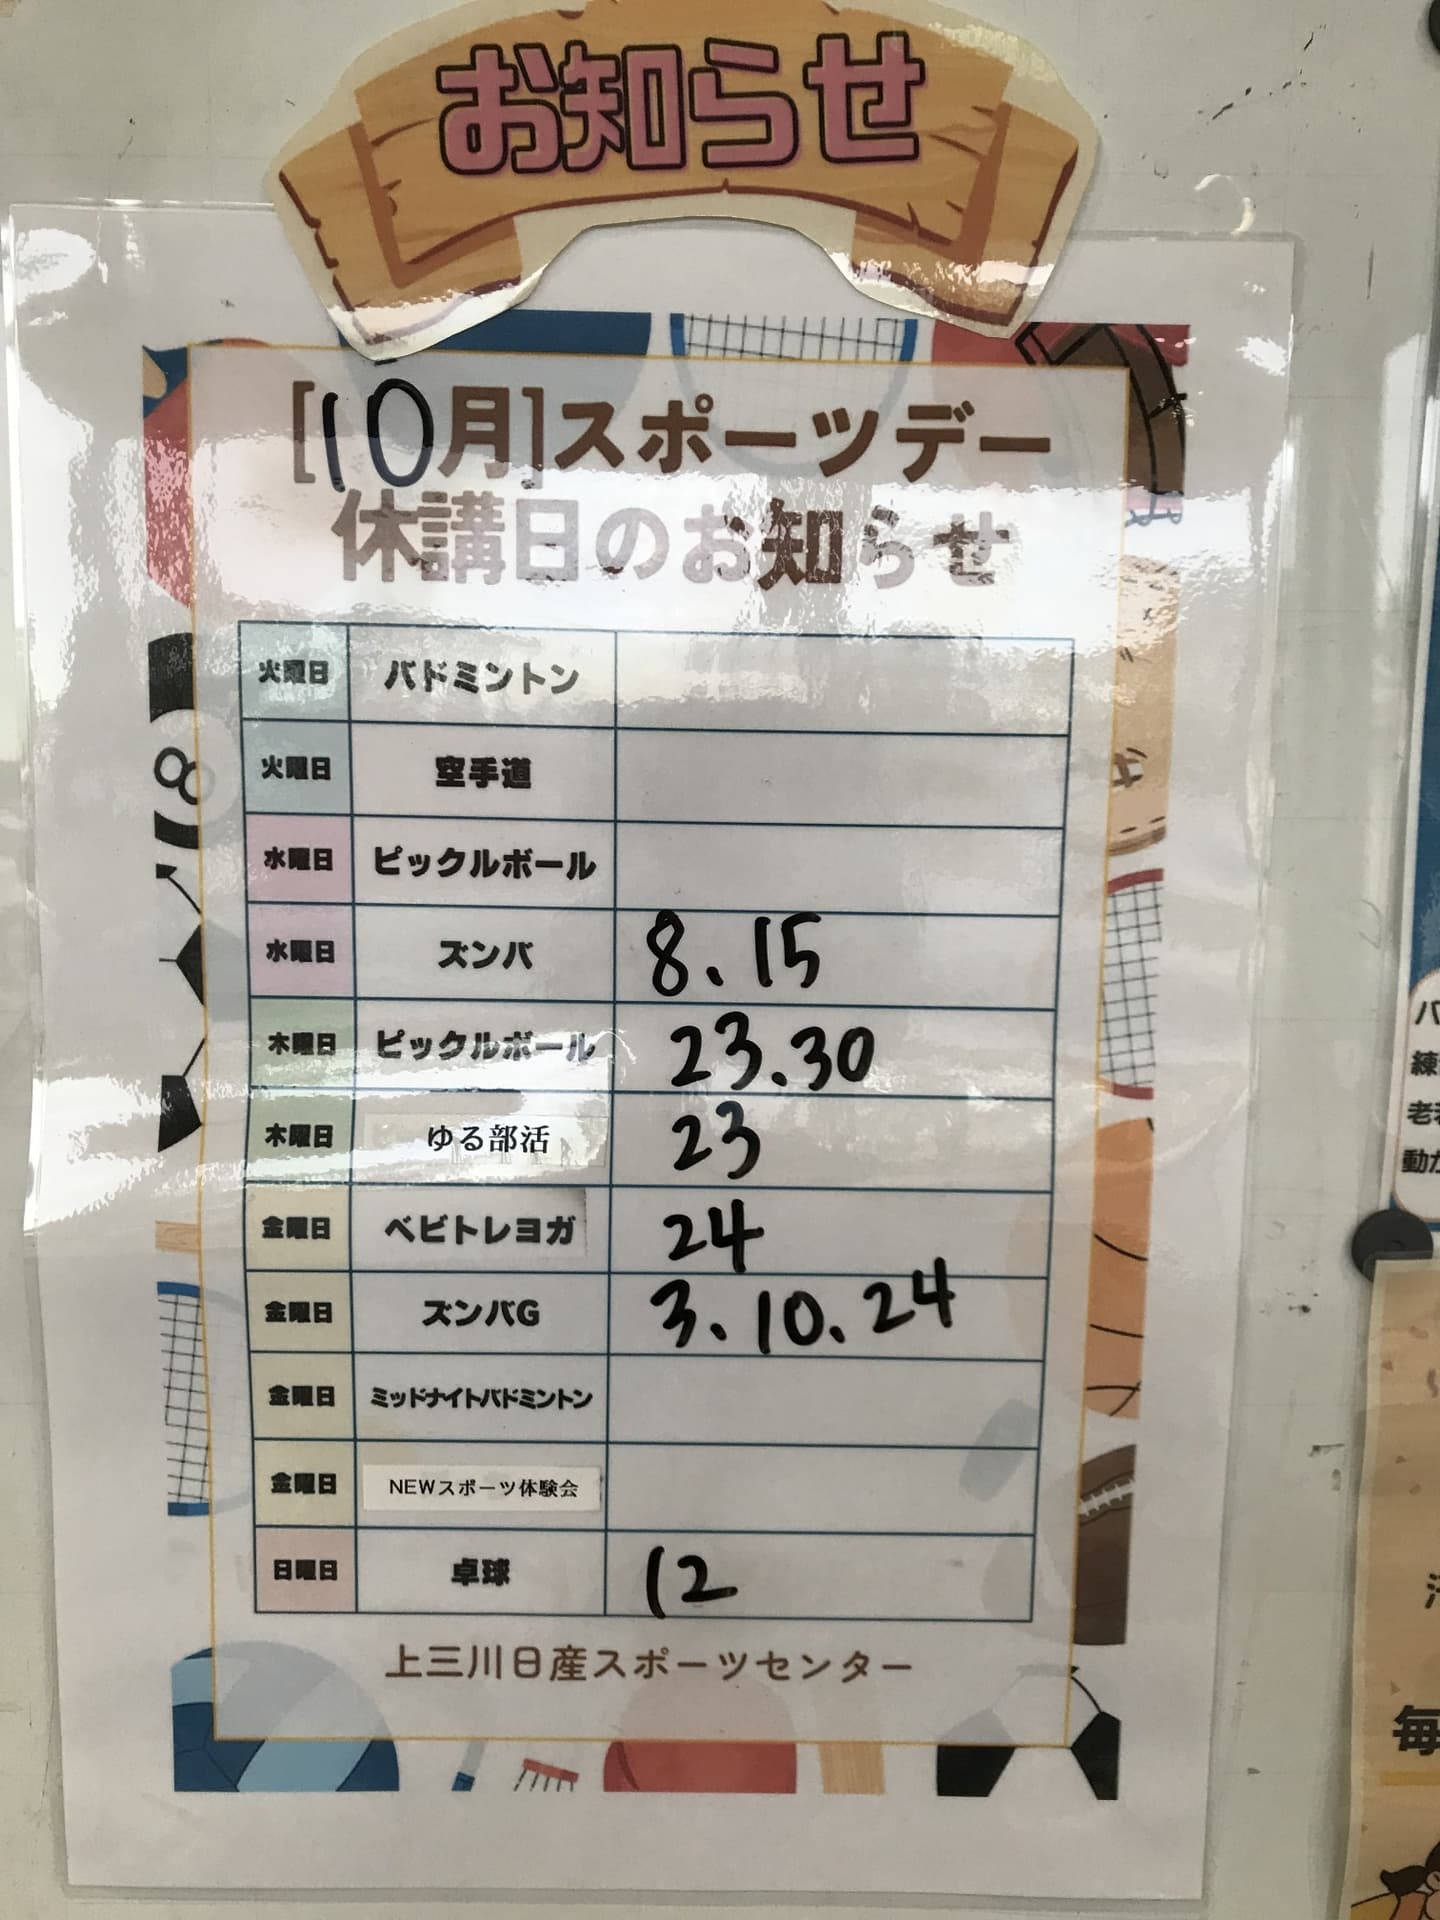 お知らせ
[10月]スポーツデー
休講日のお知らせ
火曜日 バドミントン
火曜日 空手道
水曜日 ピックルボール
水曜日 ズンバ 8. 15
木曜日 ピックルボール 23.30
木曜日 ゆる部活 23
金曜日 ベビトレヨガ 24
金曜日 ズンバG 3. 10. 24
金曜日 ミッドナイトバドミントン
金曜日 NEWスポーツ体験会
日曜日 卓球 12
上三川日産スポーツセンター
練
動か
毎